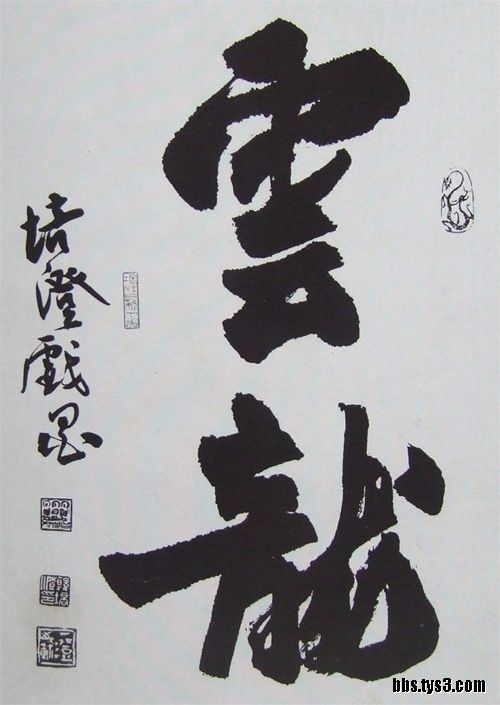 雲龍
培澄戲墨
bbs.tys3.com